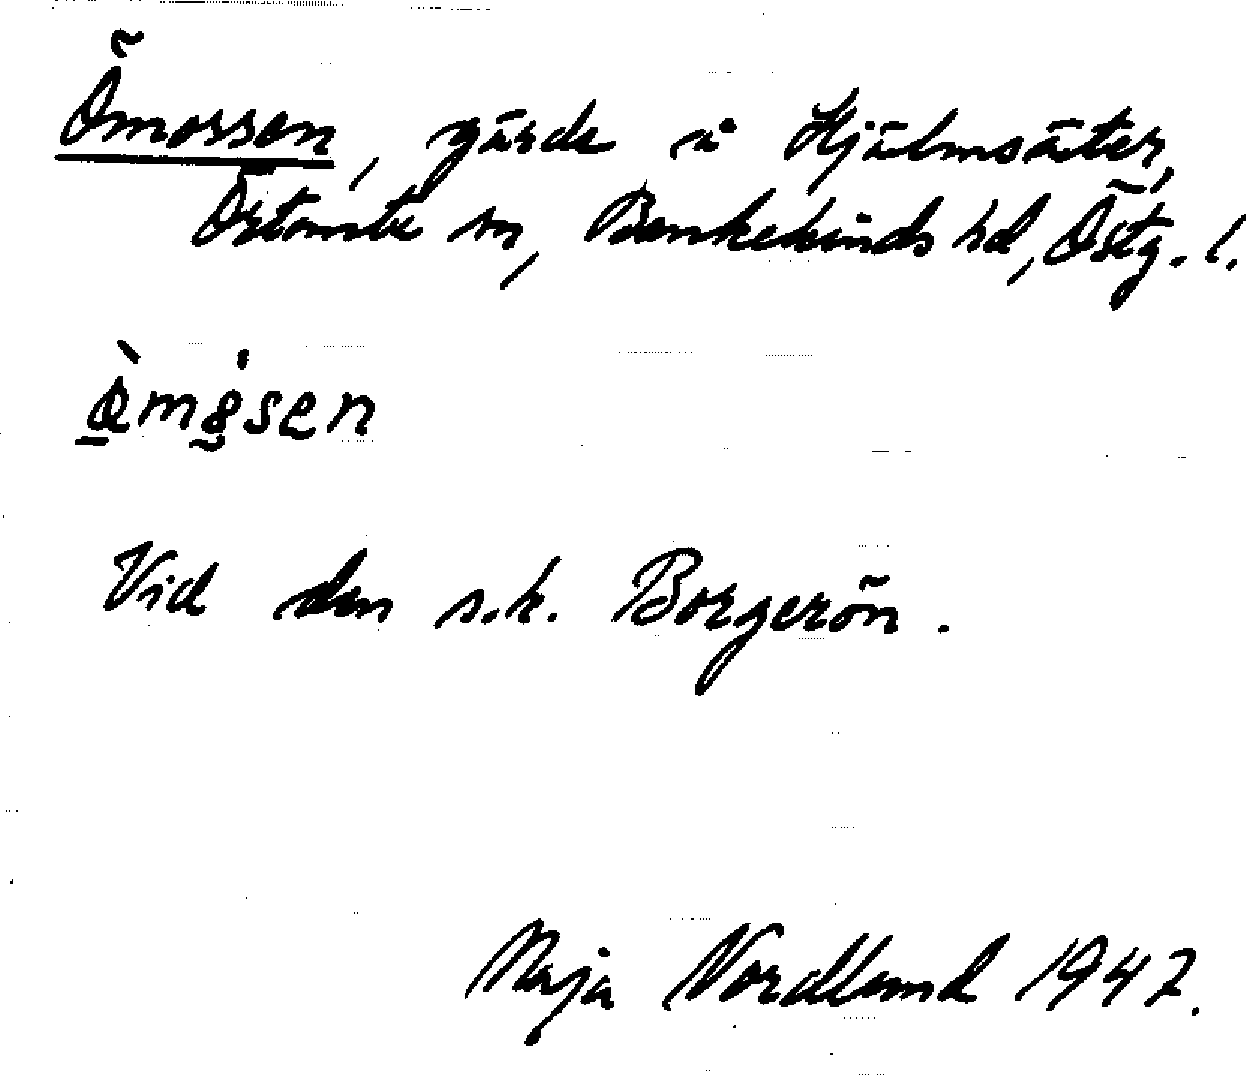 Ömossen, gärde å Hjälmsäter,
Örtomta sn, Bankekinds hd, Östg. l.
Vid den s.k. Borgerön.
Maja Nordlund 1947.